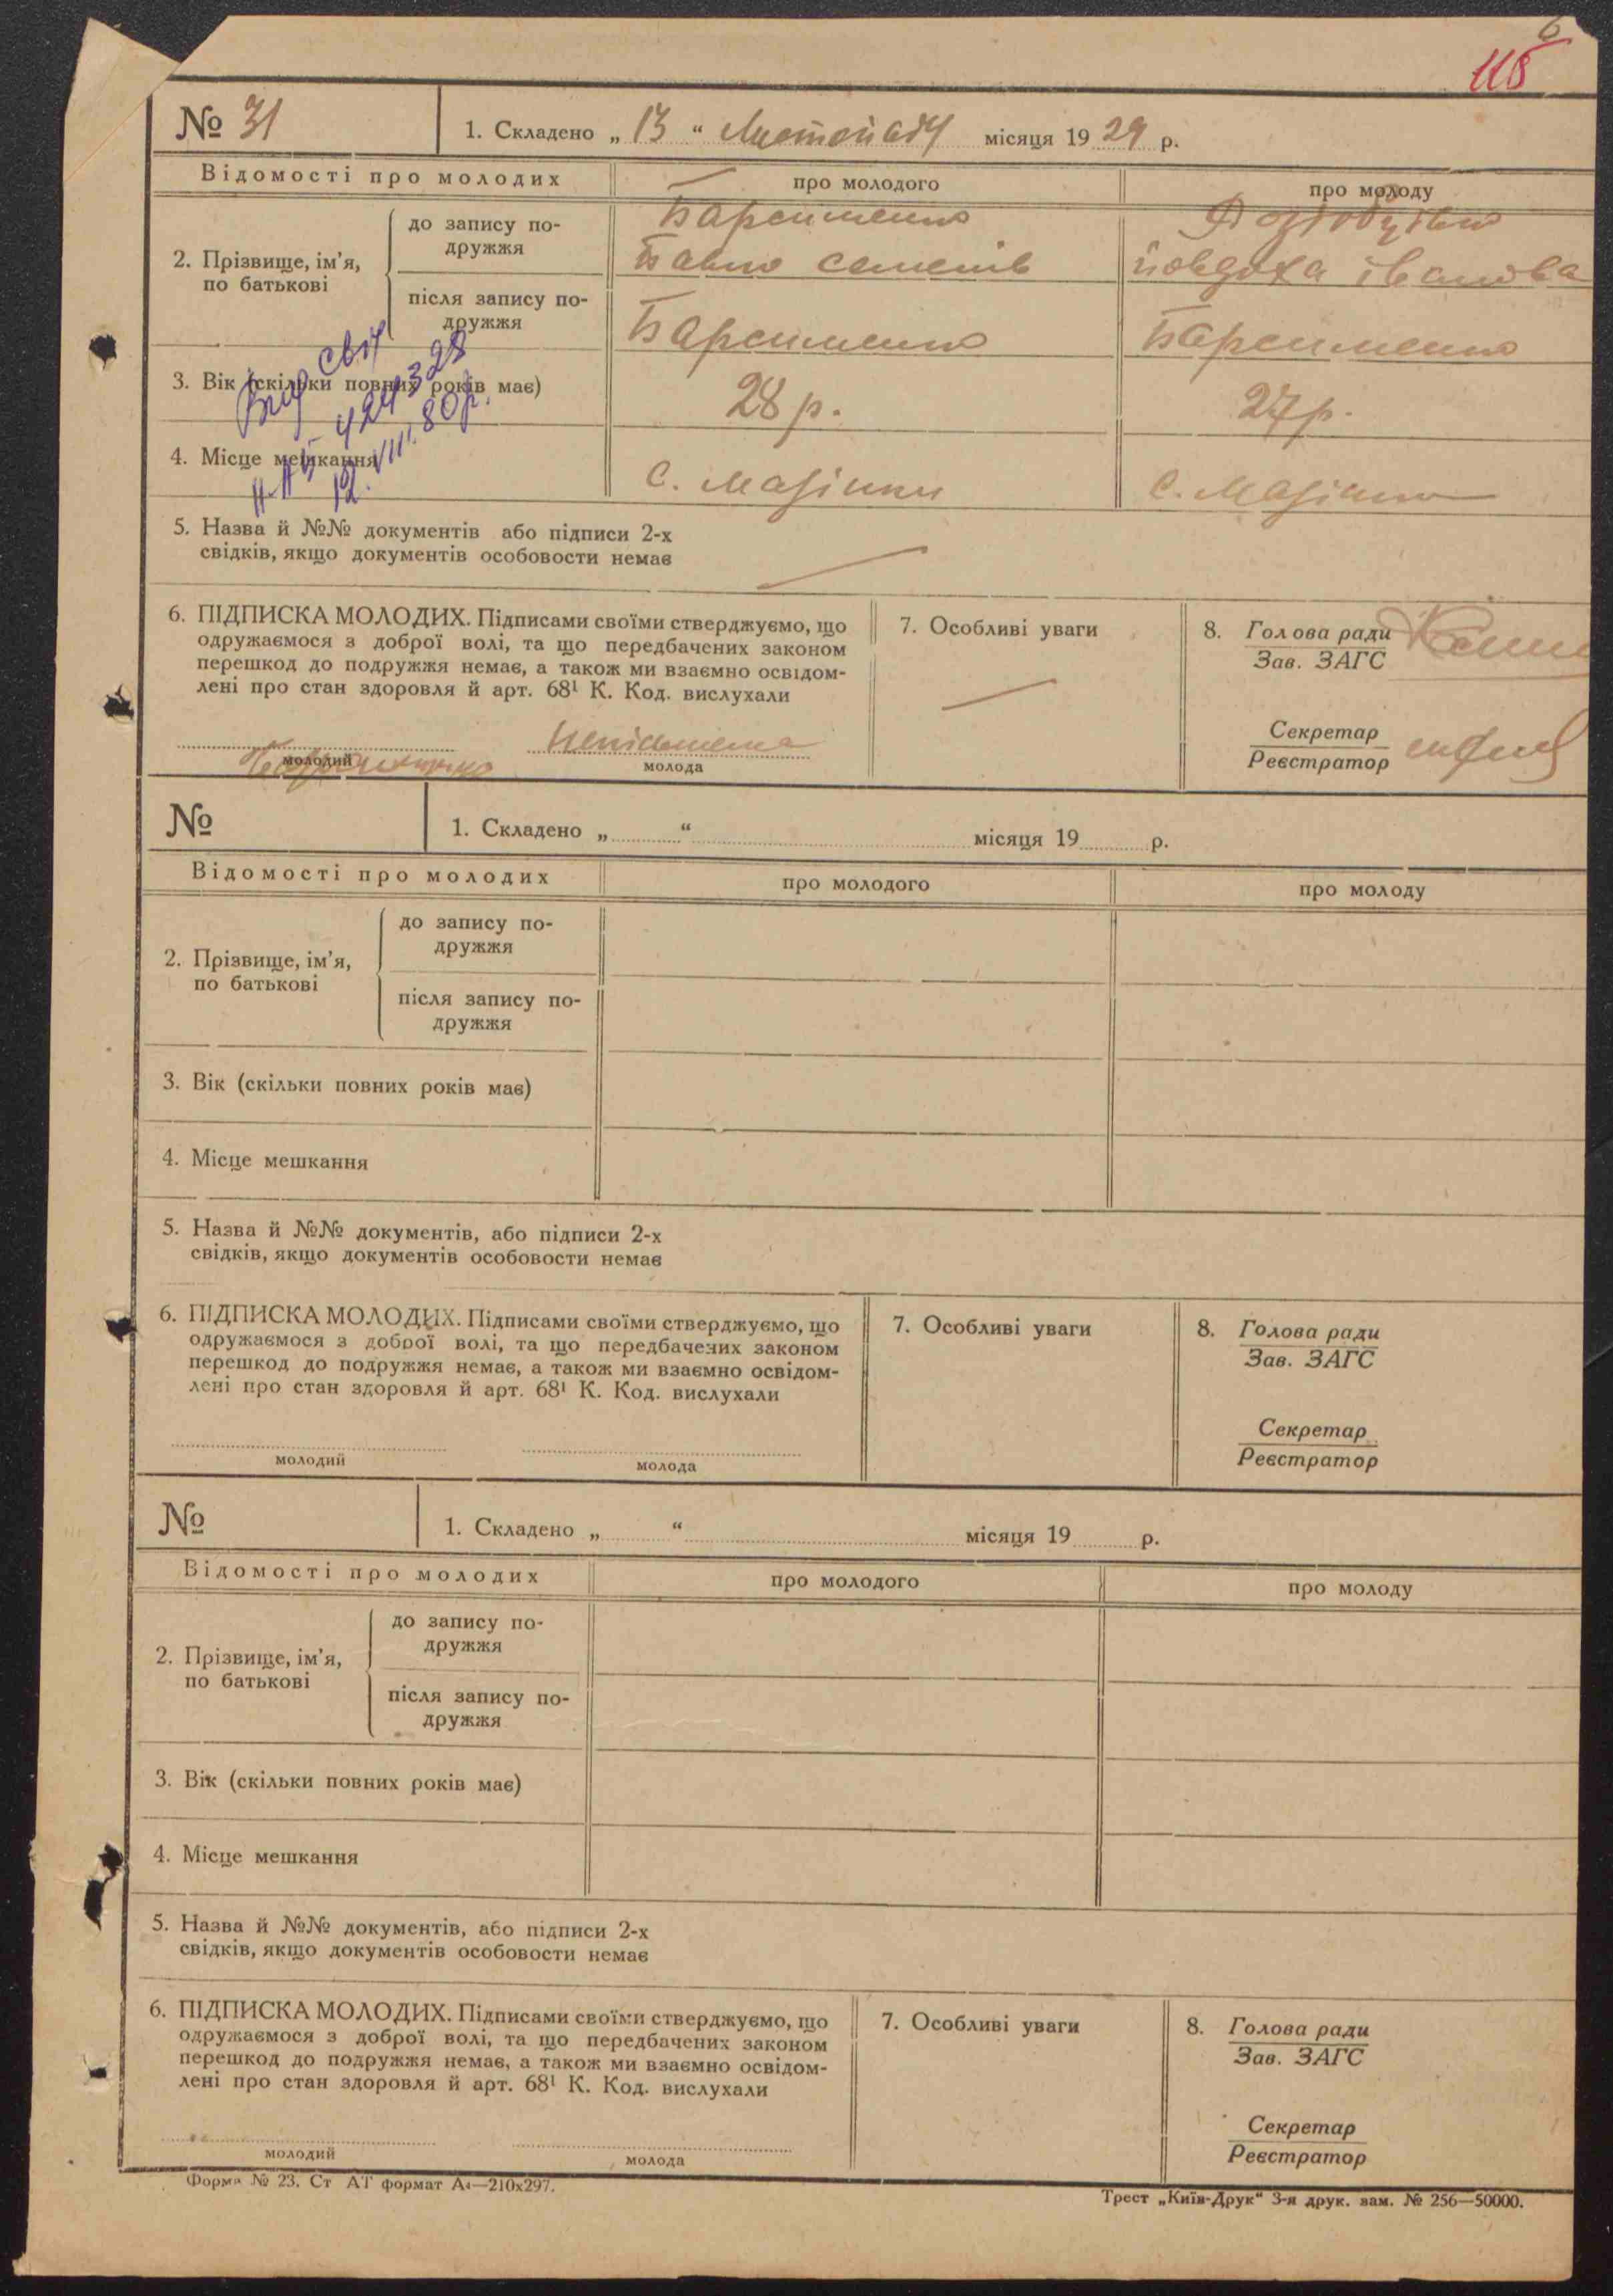 6
115
№ 31
1. Складено „ 13 “ Листопаду місяця 19 29 р.
Відомості про молодих
про молодого
про молоду
2. Прізвище, ім'я,
по батькові
до запису по-
дружжя
після запису по-
дружжя
семенів
іванова
3. Вік (скільки повних років має)
28 р.
27 р.
4. Місце мешкання
с. Мазінки
с. Мазінки
5. Назва й №№ документів або підписи 2-х
свідків, якщо документів особовости немає
6. ПІДПИСКА МОЛОДИХ. Підписами своїми стверджуємо, що
одружаємося з доброї волі, та що передбачених законом
перешкод до подружжя немає, а також ми взаємно освідом-
лені про стан здоровля й арт. 68¹ К. Код. вислухали
неписьмена
молодий
молода
7. Особливі уваги
8. Голова ради
Зав. ЗАГС
Секретар
Реєстратор
№
1. Складено „ “ місяця 19 р.
Відомості про молодих
про молодого
про молоду
2. Прізвище, ім'я,
по батькові
до запису по-
дружжя
після запису по-
дружжя
3. Вік (скільки повних років має)
4. Місце мешкання
5. Назва й №№ документів, або підписи 2-х
свідків, якщо документів особовости немає
6. ПІДПИСКА МОЛОДИХ. Підписами своїми стверджуємо, що
одружаємося з доброї волі, та що передбачених законом
перешкод до подружжя немає, а також ми взаємно освідом-
лені про стан здоровля й арт. 68¹ К. Код. вислухали
молодий
молода
7. Особливі уваги
8. Голова ради
Зав. ЗАГС
Секретар
Реєстратор
№
1. Складено „ “ місяця 19 р.
Відомості про молодих
про молодого
про молоду
2. Прізвище, ім'я,
по батькові
до запису по-
дружжя
після запису по-
дружжя
3. Вік (скільки повних років має)
4. Місце мешкання
5. Назва й №№ документів, або підписи 2-х
свідків, якщо документів особовости немає
6. ПІДПИСКА МОЛОДИХ. Підписами своїми стверджуємо, що
одружаємося з доброї волі, та що передбачених законом
перешкод до подружжя немає, а також ми взаємно освідом-
лені про стан здоровля й арт. 68¹ К. Код. вислухали
молодий
молода
7. Особливі уваги
8. Голова ради
Зав. ЗАГС
Секретар
Реєстратор
Форма № 23. Ст АТ формат А4—210х297.
Трест „Київ-Друк“ 3-я друк. зам. № 256—50000.